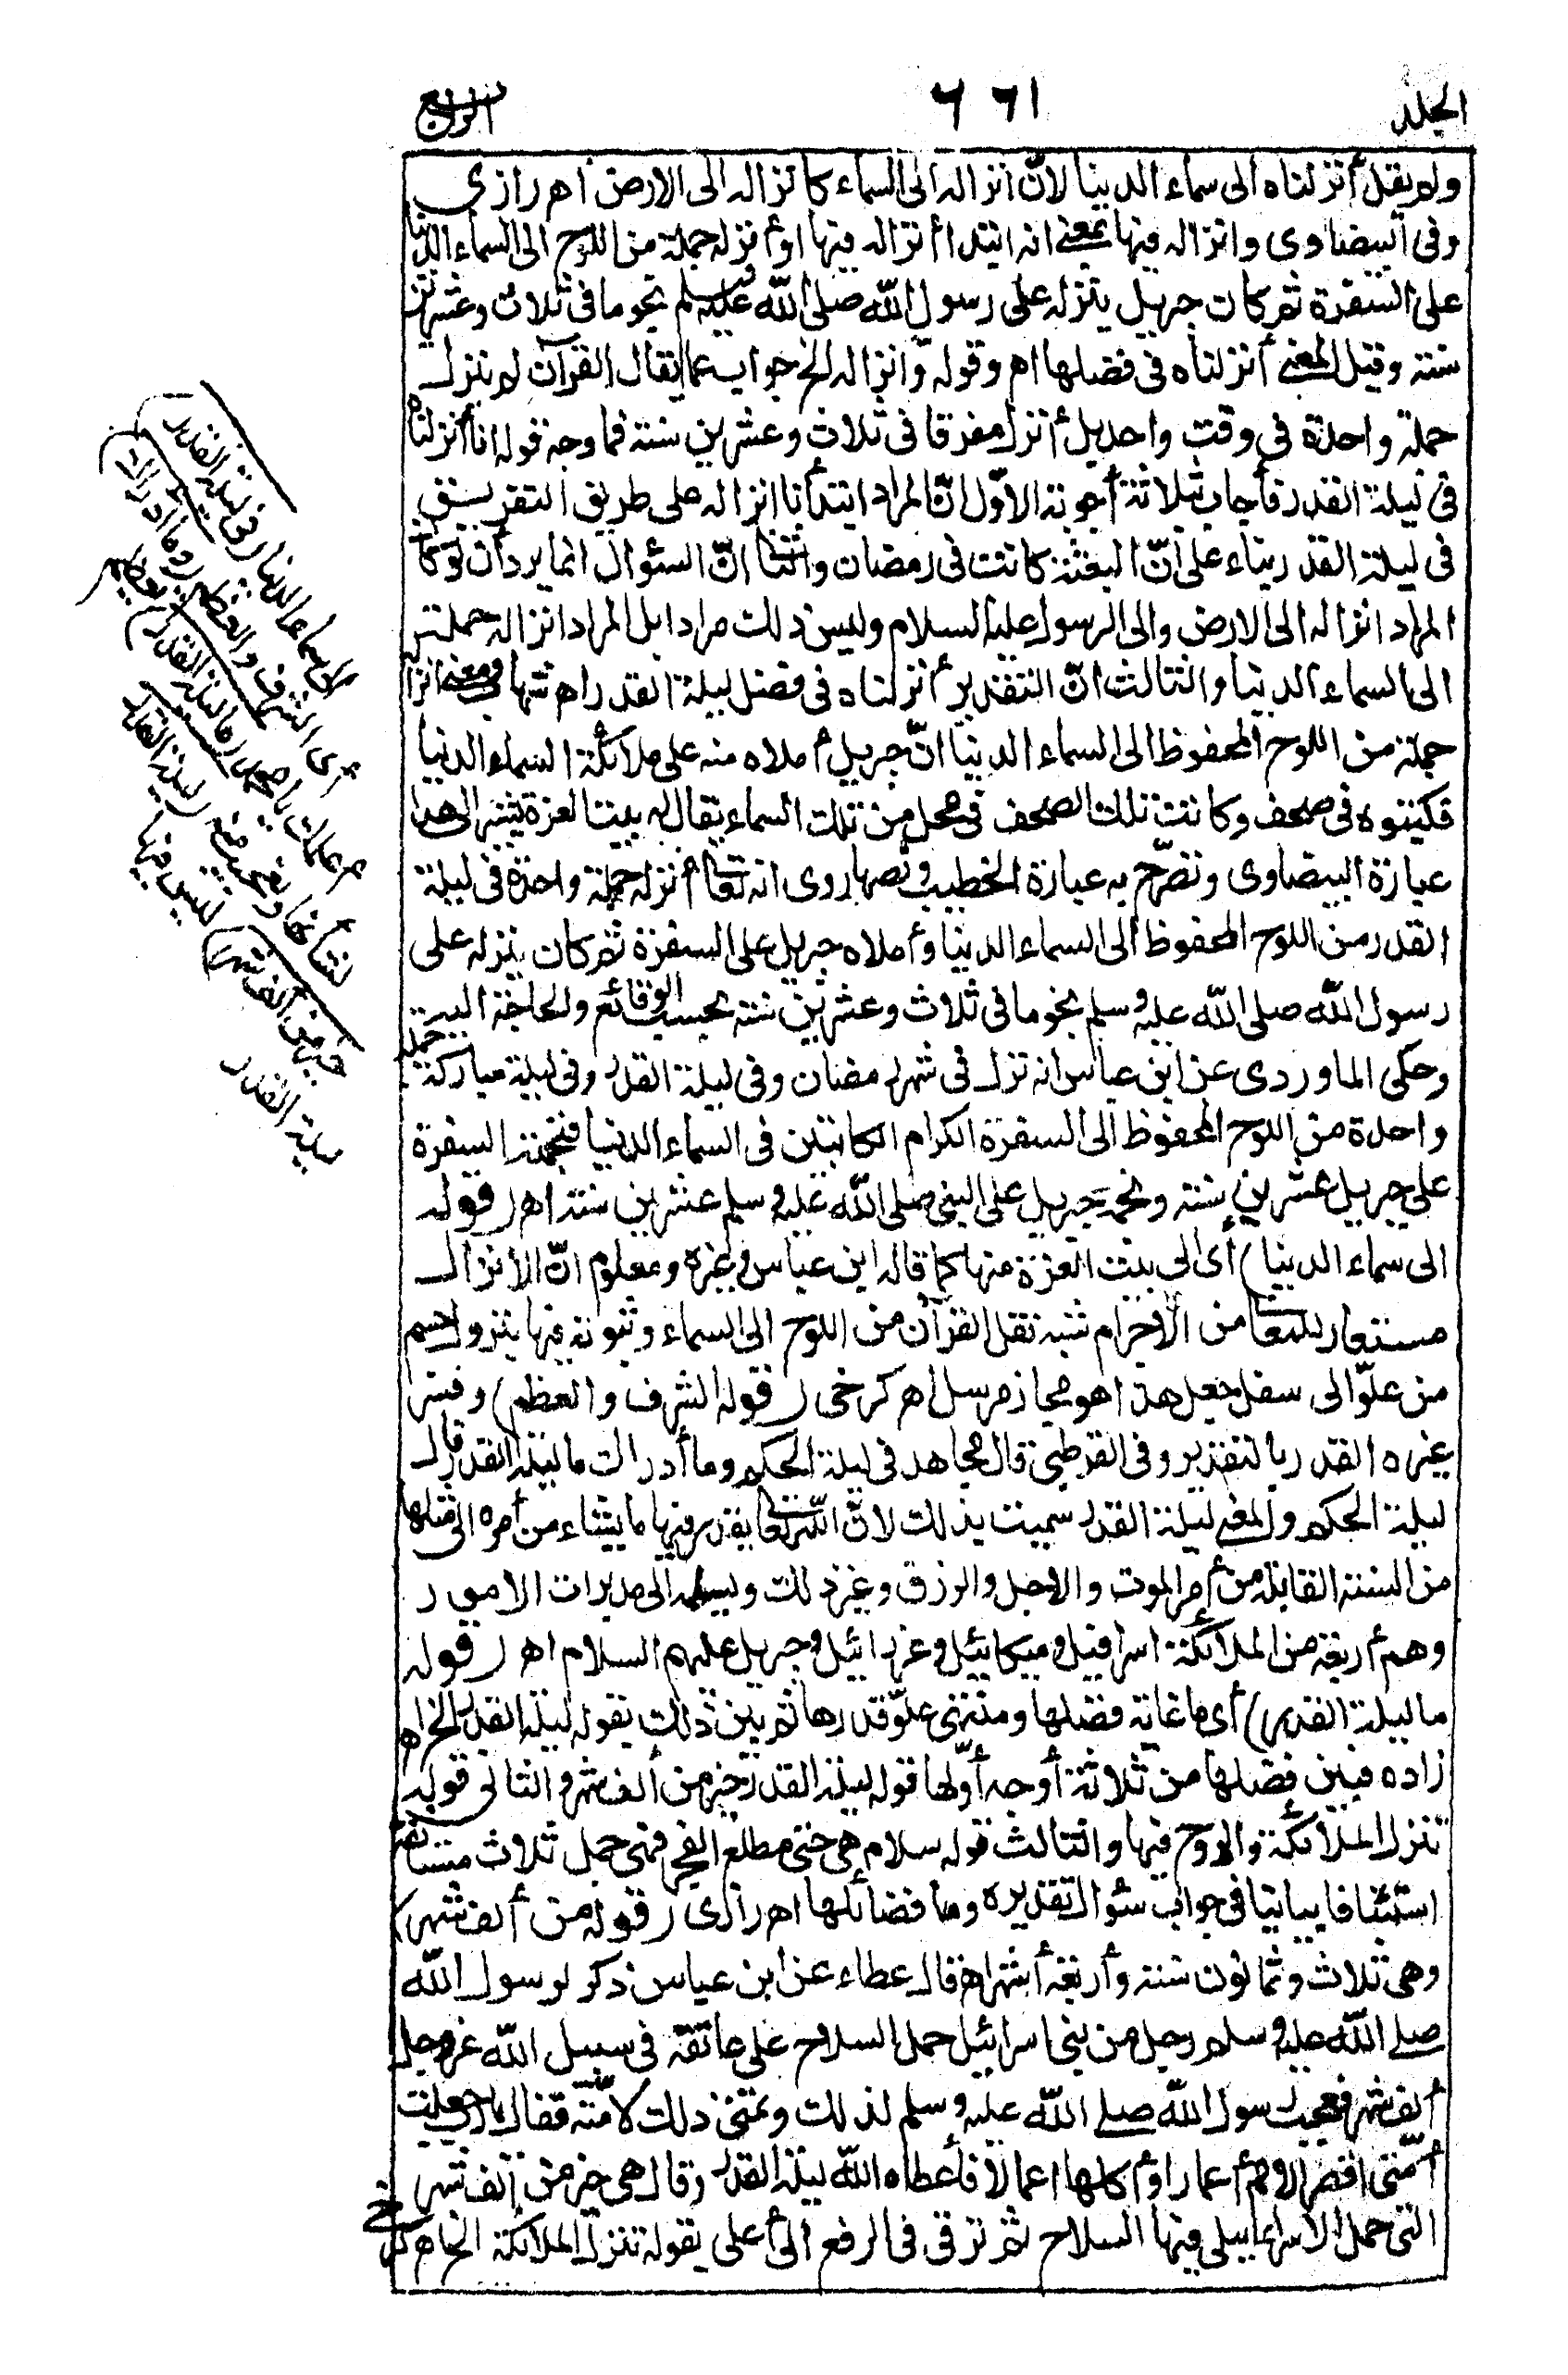 الجلد ٦٦١ الرابع
ولم يقل أنزلناه الى سماء الدنيا لانّ انزاله الى السماء كانزاله الى الارض اهـ رازى
وفى البيضاوى وانزاله فيها بمعنى انه ابتدأ أنزاله فيها او أنزله جملة من اللوح الى السماء الدنيا
على السفرة ثم كان جبريل ينزله على رسول الله صلى الله عليه وسلم نجوما فى ثلاث وعشرين
سنة وقيل المعنى أنزلناه فى فضلها اهـ وقوله وانزاله الخ جواب عما يقال القرآن لم ينزل
جملة واحدة فى وقت واحد بل أنزل مفرقا فى ثلاث وعشرين سنة فما وجه قوله انا أنزلناه
فى ليلة القدر فأجاب بثلاثة أجوبة الاوّل انّ المراد ابتدأنا انزاله على طريق التفريق
فى ليلة القدر بناء على انّ البعثة كانت فى رمضان والثانى انّ السئوال انما يرد أن لو كان
المراد انزاله الى الارض والى الرسول عليه السلام وليس ذلك مرادا بل المراد انزاله جملة
الى السماء الدنيا والثالث انّ التقدير أنزلناه فى فضل ليلة القدر اهـ شهاب ومعنى انزاله
جملة من اللوح المحفوظ الى السماء الدنيا انّ جبريل أملاه منه على ملائكة السماء الدنيا
فكتبوه فى صحف وكانت تلك الصحف فى محل من تلك السماء يقال له بيت العزة يشير الى هذا
عبارة البيضاوى وتصرّح به عبارة الخطيب ونصها روى انه تعالى أنزله جملة واحدة فى ليلة
القدر من اللوح المحفوظ الى السماء الدنيا وأملاه جبريل على السفرة ثم كان ينزله على
رسول الله صلى الله عليه وسلم نجوما فى ثلاث وعشرين سنة بحسب الوقائع والحاجة اليه
وحكى الماوردى عن ابن عباس انه نزل فى شهر رمضان وفى ليلة القدر وفى ليلة مباركة جملة
واحدة من اللوح المحفوظ الى السفرة الكرام الكاتبين فى السماء الدنيا فنجمته السفرة
على جبريل عشرين سنة ونجمه جبريل على النبى صلى الله عليه وسلم عشرين سنة اهـ (قوله
الى سماء الدنيا) أى الى بيت العزة منها كما قاله ابن عباس وغيره ومعلوم انّ الانزال
مستعار للمعانى من الاجرام شبه نقل القرآن من اللوح الى السماء وثبوته فيها بنزول جسم
من علوّ الى سفل فعل هذا هو مجاز مرسل اهـ كرخى (قوله الشرف والعظم) وفسر
غيره القدر بالتقدير وفى القرطبى قال مجاهد فى ليلة الحكم وما أدراك ما ليلة القدر قال
ليلة الحكم والمعنى ليلة القدر سميت بذلك لانّ الله تعالى يقدر فيها ما يشاء من أمره الى مثلها
من السنة القابلة من أمر الموت والاجل والرزق وغير ذلك ويسلمه الى مدبرات الامور
وهم أربعة من الملائكة اسرافيل وميكائيل وعزرائيل وجبريل عليهم السلام اهـ (قوله
ما ليلة القدر) أى ما غاية فضلها ومنتهى علوّ قدرها ثم بين ذلك بقوله ليلة القدر الخ اهـ
زاده فبين فضلها من ثلاثة أوجه أوّلها قوله ليلة القدر خير من ألف شهر والثانى قوله
تنزل الملائكة والروح فيها والثالث قوله سلام هى حتى مطلع الفجر فهى جمل ثلاث مستأنفة
استئنافا بيانيا فى جواب سئوال تقديره وما فضائلها اهـ رازى (قوله من ألف شهر)
وهى ثلاث وثمانون سنة وأربعة أشهر اهـ قال عطاء عن ابن عباس ذكر لرسول الله
صلى الله عليه وسلم رجل من بنى اسرائيل حمل السلاح على عاتقه فى سبيل الله عز وجل
ألف شهر فعجب رسول الله صلى الله عليه وسلم لذلك وتمنى ذلك لامّته فقال يا رب جعلت
أمّتى اقصر الامم أعمارا وأقلها اعمالا فأعطاه الله ليلة القدر وقال هى خير من ألف شهر
التى حمل الاسرائيلى فيها السلاح ثم ترقى فى الرفع الى أعلى بقوله تنزل الملائكة الخ اهـ كرخى
الى سماء الدنيا (فى ليلة القدر)
أى الشرف والعظم (وما أدراك)
أعلمك يا محمد (ما ليلة القدر) تعظيم
لشأنها وتعجيب منه (ليلة القدر
خير من ألف شهر) ليس فيها
ليلة القدر